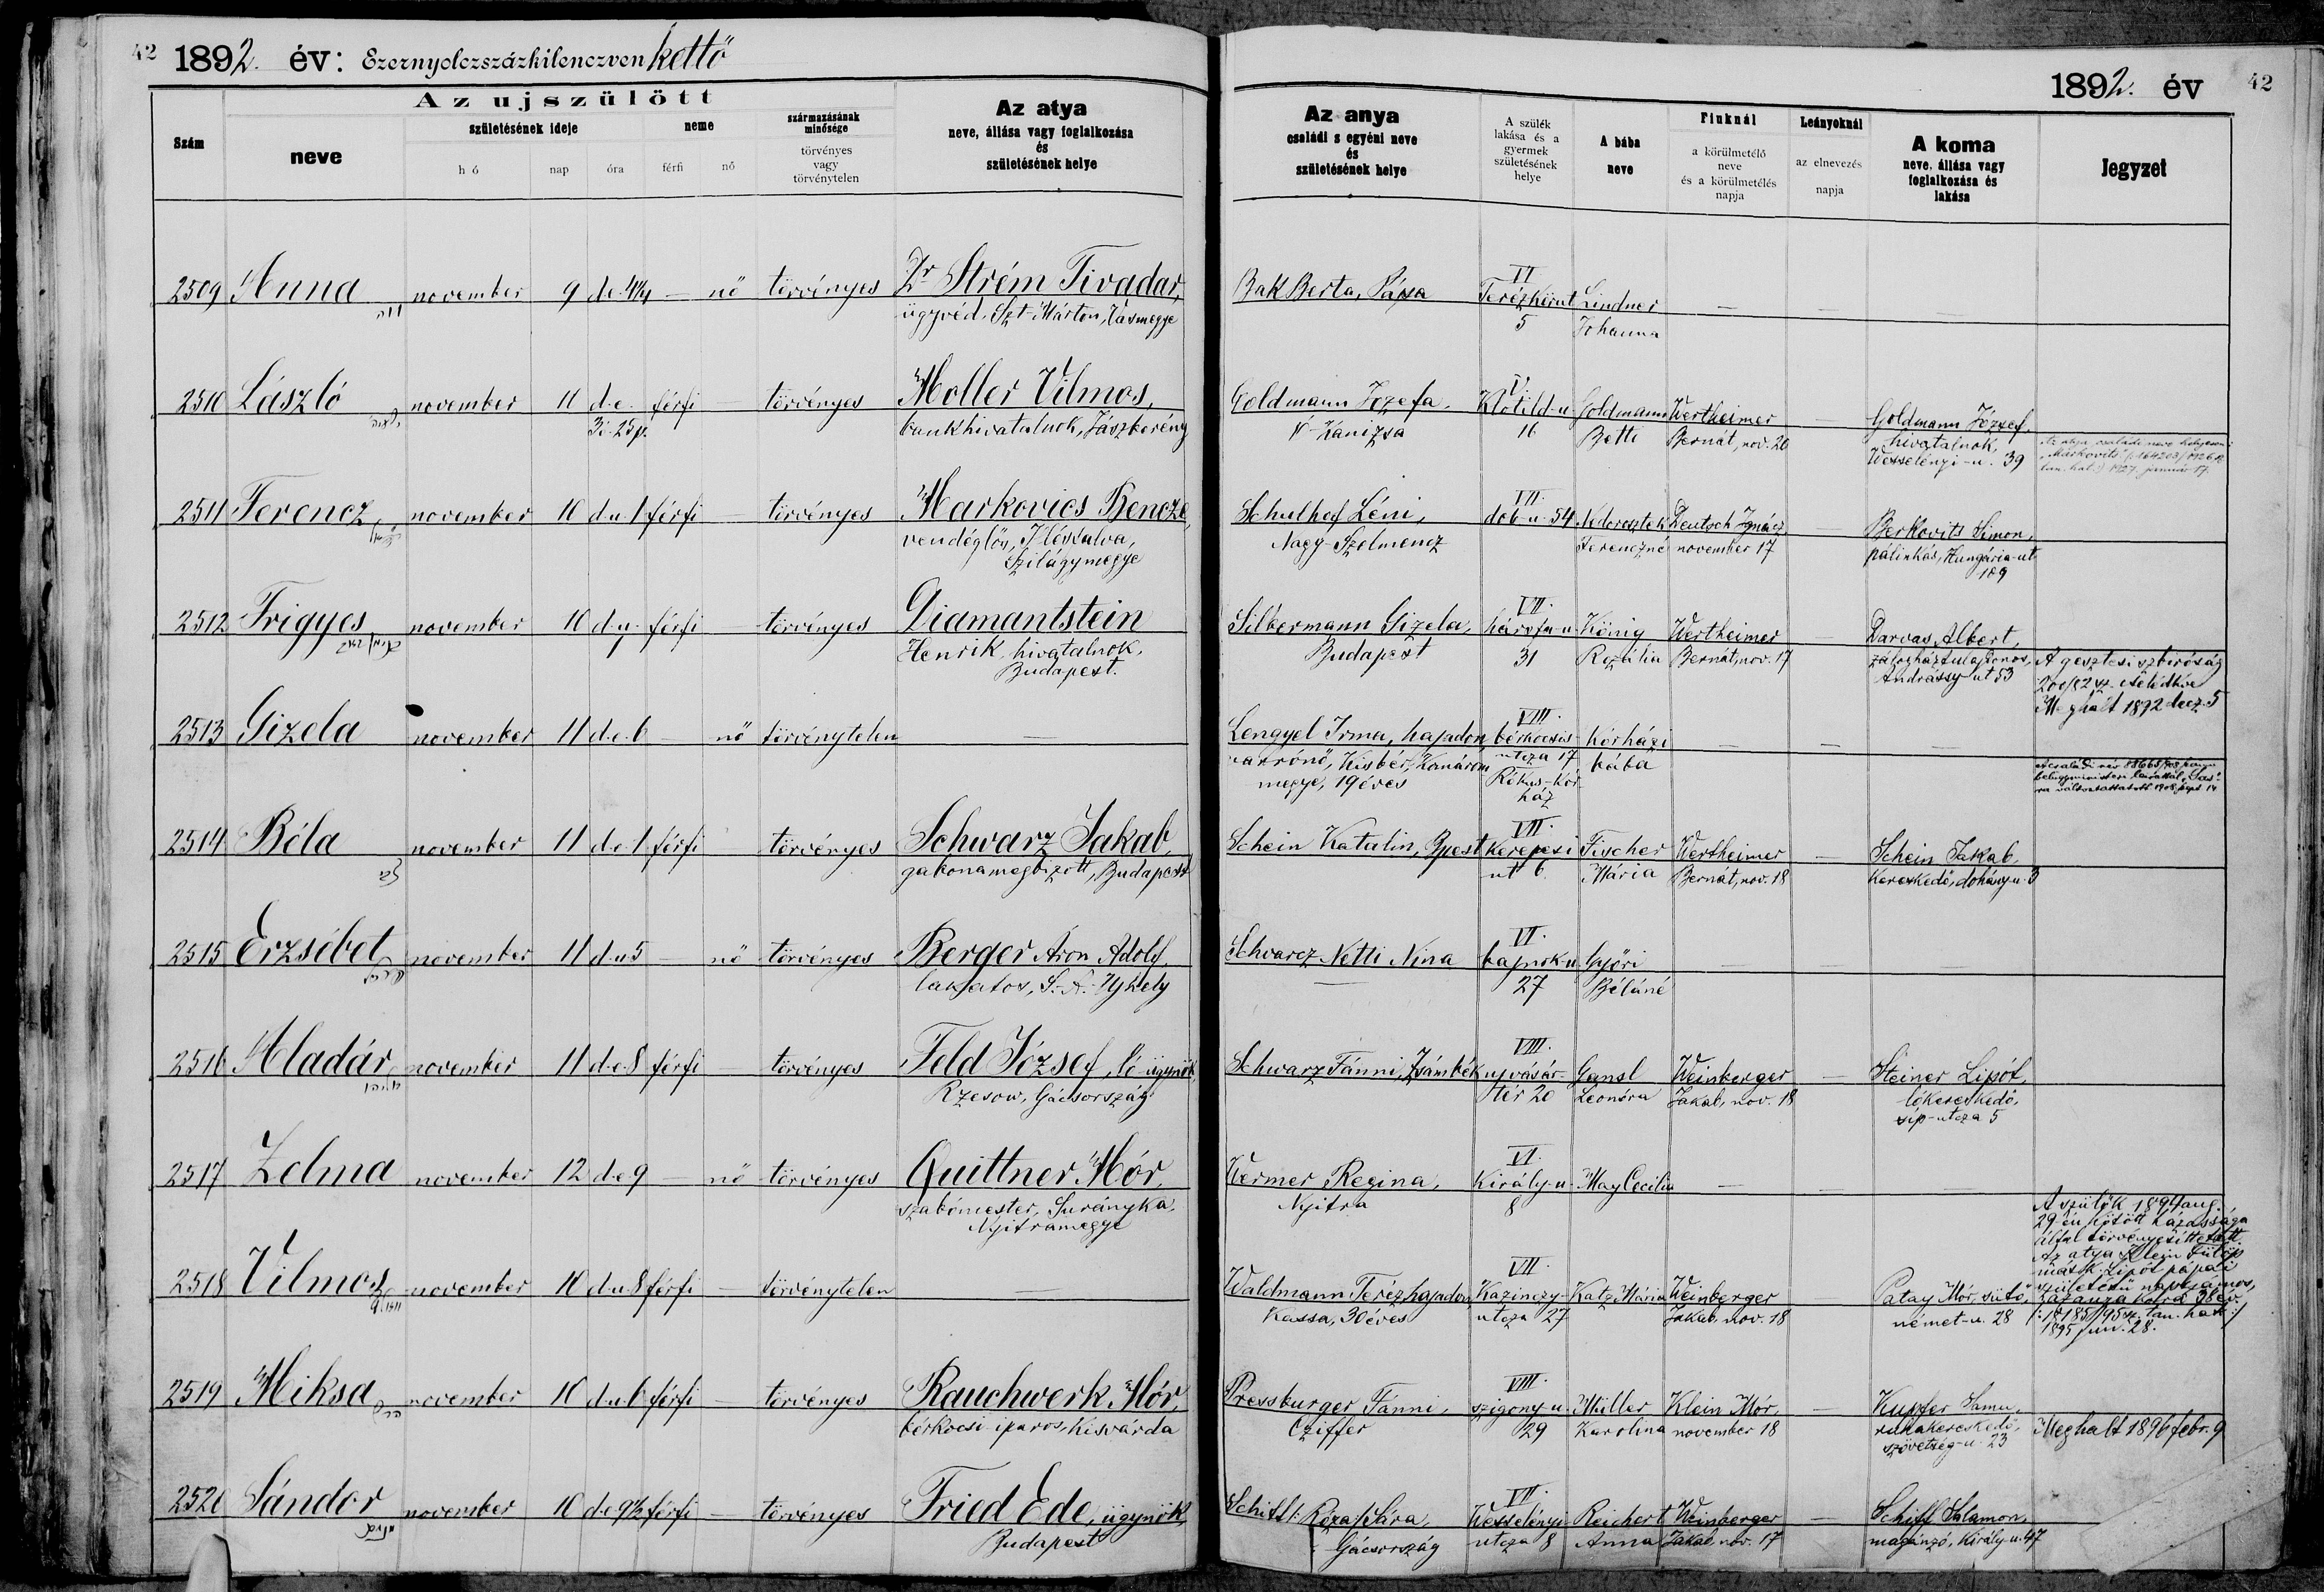 42 1892. év: Ezernyolczszázkilenczven kettő
Az ujszülött
Szám
neve
születésének ideje
hó
nap
óra
neme
férfi
nő
származásának minősége
törvényes vagy törvénytelen
Az atya
neve, állása vagy foglalkozása
és
születésének helye
1892. év 42
Az anya
családi s egyéni neve
és
születésének helye
A szülék
lakása és a
gyermek
születésének
helye
A bába
neve
Fiuknál
a körülmetélő
neve
és a körülmetélés
napja
Leányoknál
az elnevezés
napja
A koma
neve, állása vagy
foglalkozása és
lakása
Jegyzet
2509 Anna november 9 d.e. 4¼ — nő törvényes Dr Strém Tivadar,
ügyvéd, Szt-Márton, Vasmegye
Bak Berta, Pápa
VI
Terézkörut
5
Lindner
Johanna
— — —
2510 László november 11 d.e. férfi — törvényes Moller Vilmos,
3ó. 25p.
bankhivatalnok, Jászberény
Goldmann Jozefa,
N-Kanizsa
V.
Klotild-u.
16
Goldmann
Betti
Wertheimer
Bernát, nov. 20
—
Goldmann József,
hivatalnok,
Wesselényi-u. 39
2511 Ferencz november 10 d.u. 1 férfi törvényes Markovics Bencze,
vendéglős,
Szilágymegye
Az atya családi neve helyesen:
"Markovits"
1927. január 17.
Schulhof Léni,
Nagy-Szelmencz
VII.
dob-u. 54
Ferenczné
Deutsch Ignácz
november 17
—
Berkovits Simon,
pálinkás, Hungária-ut
109
2512 Frigyes november 10 d.u. férfi — törvényes Diamantstein
Henrik, hivatalnok,
Budapest.
Silbermann Gizela,
Budapest
VII.
hársfa-u.
31
König
Rozália
Wertheimer
Bernát, nov. 17
—
Darvas Albert,
zálogháztulajdonos,
Andrássy ut 53
2513 Gizela november 11 d.e. 6 — nő törvénytelen —
Lengyel Irma, hajadon
varrónő, Kisbér, Komárom
megye, 19 éves
VIII.
bérkocsis-
utcza 17
Rókus-kór-
ház
kórházi
bába
— — —
A gesztesi szbiróság
Meghalt 1892 decz. 5
2514 Béla november 11 d.e. 1 férfi törvényes Schwarz Jakab,
gabonamegbizott, Budapest
Schein Katalin, Bpest
VII.
Kerepesi
ut 6
Fischer
Mária
Wertheimer
Bernát, nov. 18
—
Schein Jakab,
kereskedő, dohány-u. 3
2515 Erzsébet november 11 d.u. 5 — nő törvényes Berger Áron Adolf,
lakatos, S.-A.-Ujhely
Schvarcz Netti Nina
—
VI.
bajnok-u.
27
Győri
Béláné
— — —
2516 Aladár november 11 d.e. 8 férfi — törvényes Feld József, ló-ügynök,
Rzesow, Gácsország
Schwarz Fánni, Zsámbék
VIII.
ujvásár-
tér 20
Gansl
Leonóra
Weinberger
Jakab, nov. 18
—
Steiner Lipót,
lókereskedő,
sip-utcza 5
2517 Zelma november 12 d.e. 9 — nő törvényes Quittner Mór,
szabómester, Surányka,
Nyitramegye
Wermer Regina,
Nyitra
VI.
Király-u.
8
May Cecilia
— — —
2518 Vilmos november 10 d.u. 8 férfi — törvénytelen —
Waldmann Teréz hajadon
Kassa, 30 éves
VII.
Kazinczy-
utcza 27
Katz Mária
Weinberger
Jakab, nov. 18
Patay Mór, sütő,
német-u. 28
A szülők 1894 aug.
29-én kötött házassága
által törvényesittetett.
Az atya Klein Fülöp
másk. Lipót pápai
születésü napszámos,
1895 jun. 28.
2519 Miksa november 10 d.u. 6 férfi — törvényes Rauchwerk Mór,
bérkocsi iparos, Kisvárda
Pressburger Fánni,
Cziffer
VIII.
szigony-u.
29
Müller
Karolina
Klein Mór,
november 18
—
Kupfer Samu,
ruhakereskedő,
szövetség-u. 23
Meghalt 1896 febr. 9
2520 Sándor november 10 d.e. 9½ férfi — törvényes Fried Ede, ügynök,
Budapest
Schiff Róza Sára,
Gácsország
VII.
Wesselényi-
utcza 8
Reichert
Anna
Weinberger
Jakab, nov. 17
—
Schiff Salamon,
magánzó, Király-u. 47